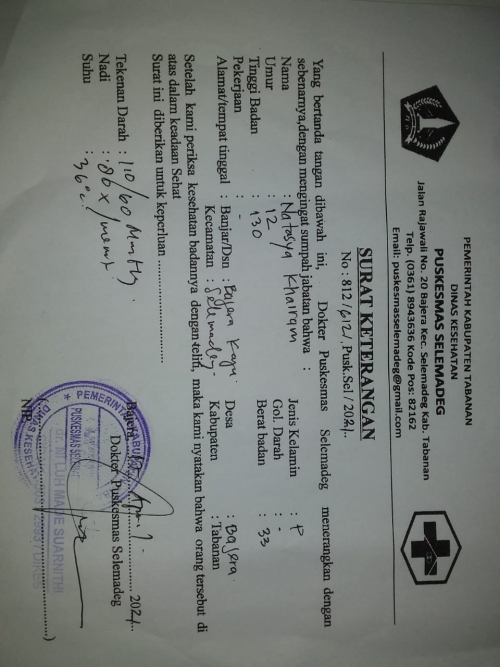 PEMERINTAH KABUPATEN TABANAN
DINAS KESEHATAN
PUSKESMAS SELEMADEG
Jalan Rajawali No. 20 Bajera Kec. Selemadeg Kab. Tabanan
Telp. (0361) 8943636 Kode Pos: 82162
Email: puskesmasselemadeg@gmail.com
SURAT KETERANGAN
No : 812 / 612 / . Pusk.Sel / 2021..
Yang bertanda tangan dibawah ini, Dokter Puskesmas Selemadeg menerangkan dengan
sebenarnya,dengan mengingat sumpah jabatan bahwa :
Nama : Natasya Khairam Jenis Kelamin : P
Umur : 12 Gol. Darah : -
Tinggi Badan : 130 Berat badan : 33
Pekerjaan : -
Alamat/tempat tinggal : Banjar/Dsn : Bajera Desa : Bajera.
Kecamatan : Selemadeg. Kabupaten : Tabanan
Setelah kami periksa kesehatan badannya dengan teliti, maka kami nyatakan bahwa orang tersebut di
atas dalam keadaan Sehat
Surat ini diberikan untuk keperluan ................................
Tekenan Darah : 110/60 MmHg.
Nadi : 86 x/menit
Suhu : 36°C.
Bajera, 2021..
Dokter Puskesmas Selemadeg
PUSKESMAS
dr. NI LUH MADE SUARNITHI
NIP.